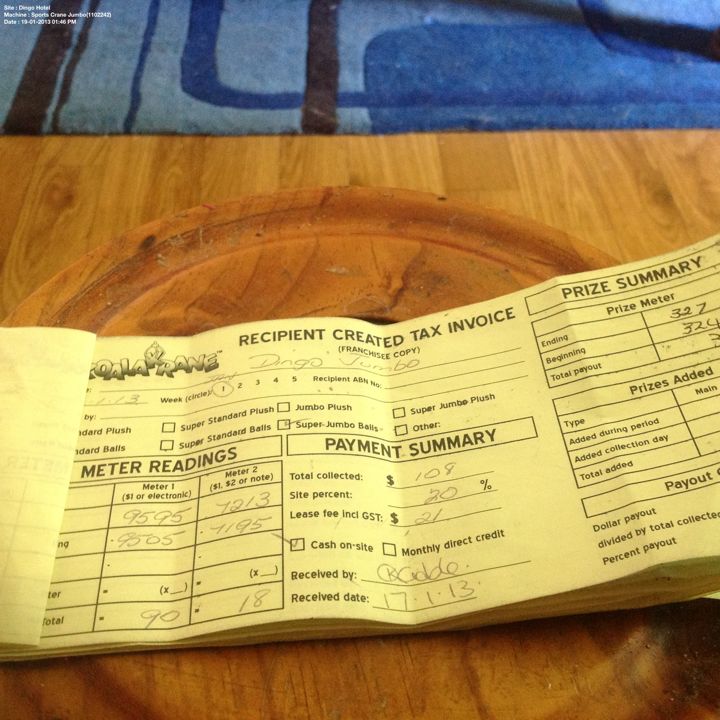 Site : Dingo Hotel
Machine : Sports Crane Jumbo(1102242)
Date : 19-01-2013 01:46 PM
KOALA KRANE™
RECIPIENT CREATED TAX INVOICE
(FRANCHISEE COPY)
Dingo Jumbo
1.13 Week (circle) 1 2 3 4 5 Recipient ABN No:
by:
ndard Plush Super Standard Plush Jumbo Plush Super Jumbo Plush
ndard Balls Super Standard Balls Super Jumbo Balls Other:
METER READINGS
Meter 1 Meter 2
($1 or electronic) ($1, $2 or note)
9595 7213
ng 9505 7195
ter = (x__) = (x__)
otal 90 18
PAYMENT SUMMARY
Total collected: $ 108
Site percent: 20 %
Lease fee incl GST: $ 21
Cash on-site Monthly direct credit
Received by:
Received date: 17.1.13.
PRIZE SUMMARY
Prize Meter
Ending 327
Beginning 324
Total payout 3
Prizes Added
Type Main
Added during period
Added collection day
Total added
Payout
Dollar payout
divided by total collected
Percent payout